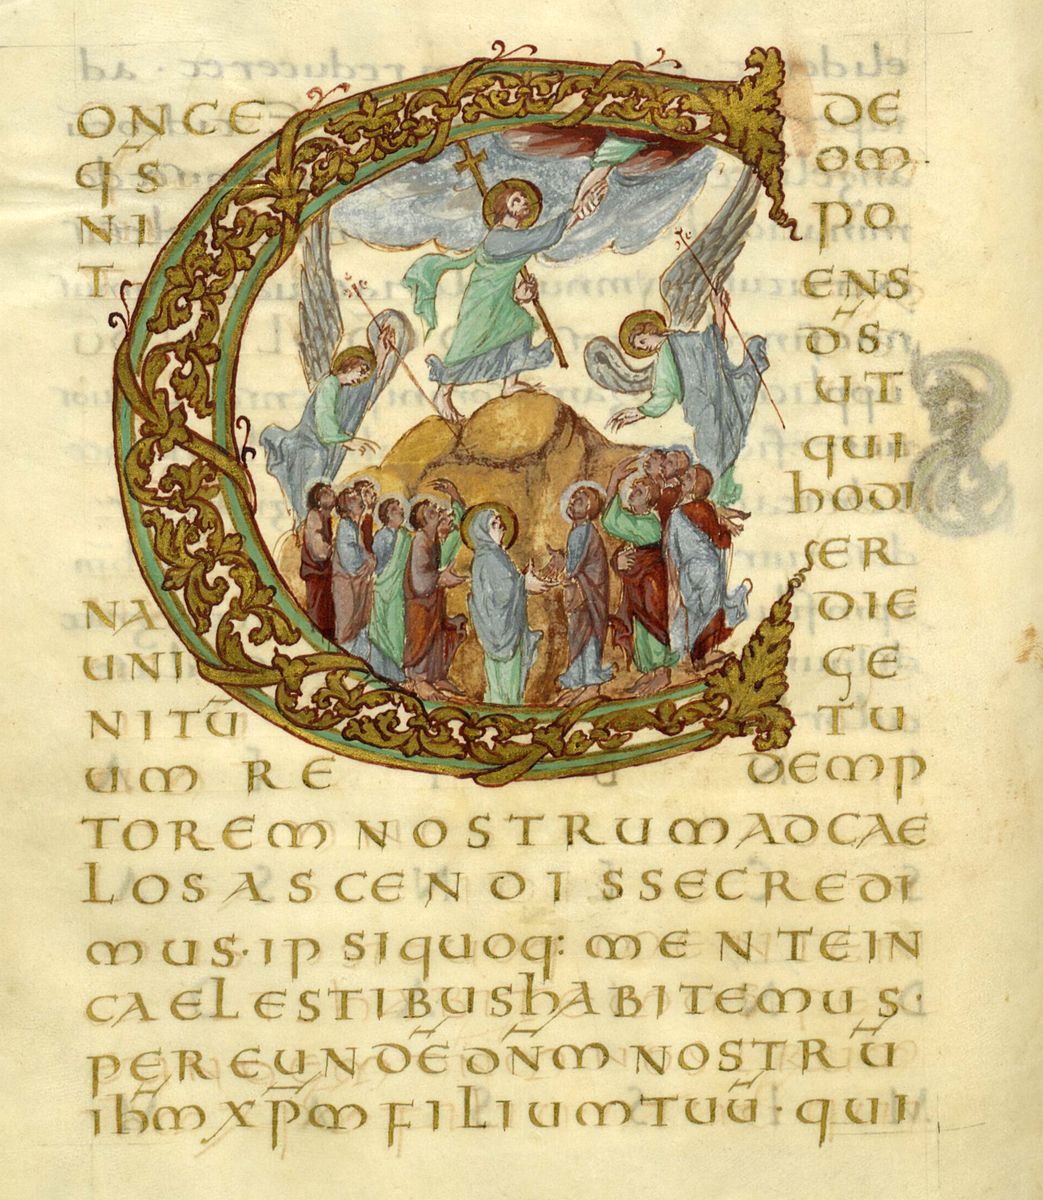 CONCE DE
q̄S OM
NI PO
T ENS
D̄S
UT
QUI
hODI
ER
NA DIE
UNI GE
NITŪ TU
UM RE DEMP
TOREM NOSTRUM AD CAE
LOS ASCENDISSE CREDI
MUS· IPSI QUOQ: MENTE IN
CAELESTIBUS hABITEMUS·
PER EUNDĒ DN̄M NOSTRŪ
ih̄m XP̄M FILIUM TUŪ· QUI